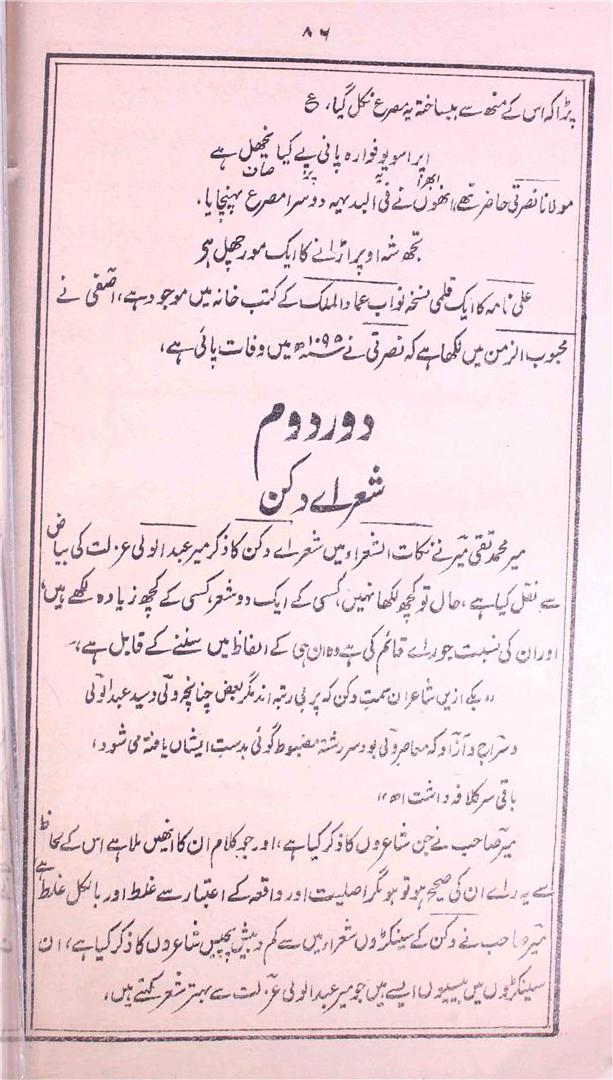 ۸۶
پڑا کہ اس کے منھ سے بیساختہ یہ مصرع نکل گیا، ع
اپرا مویو فوارہ پانی پے کیا نچھل ہے
ابھرا یہ پر صاف
مولانا نصرتی حاضر تھے، انھوں نے فی البدیہہ دوسرا مصرع پہنچایا،
تجھ شہ اوپر اڑانے کا ایک مورچھل ہی
علی نامہ کا ایک قلمی نسخہ نواب عماد الملک کے کتب خانہ میں موجود ہے، آصفی نے
محبوب الزمن میں لکھا ہے کہ نصرتی نے ۱۰۹۵ھ میں وفات پائی ہے،
دور دوم
شعراے دکن
میر محمد تقی میر نے نکات الشعراء میں شعراے دکن کا ذکر میر عبد الولی عزلت کی بیاض
سے نقل کیا ہے، حال تو کچھ لکھا نہیں، کسی کے ایک دو شعر، کسی کے کچھ زیادہ لکھے ہیں،
اور ان کی نسبت جو راے قائم کی ہے وہ ان ہی کے الفاظ میں سننے کے قابل ہے،
"یکے ازیں شاعران سمت دکن کہ پر بی رتبہ اند مگر بعض چنانچہ ولی و سید عبد الولی
و سراج و آزاد کہ معاصر ولی بود سررشتہ مضبوط گوئی بدست ایشاں یافتہ می شود،
باقی سر کلافہ داشت اھ ۱۲
میر صاحب نے جن شاعروں کا ذکر کیا ہے، اور جو کلام ان کا انھیں ملا ہے اس کے لحاظ
سے یہ راے ان کی صحیح ہو تو ہو مگر اصلیت اور واقعہ کے اعتبار سے غلط اور بالکل غلط ہے
میر صاحب نے دکن کے سینکڑوں شعراء میں سے کم و بیش پچیس شاعروں کا ذکر کیا ہے، ان
سینکڑوں میں بیسیوں ایسے ہیں جو میر عبد الولی عزلت سے بہتر شعر کہتے ہیں،